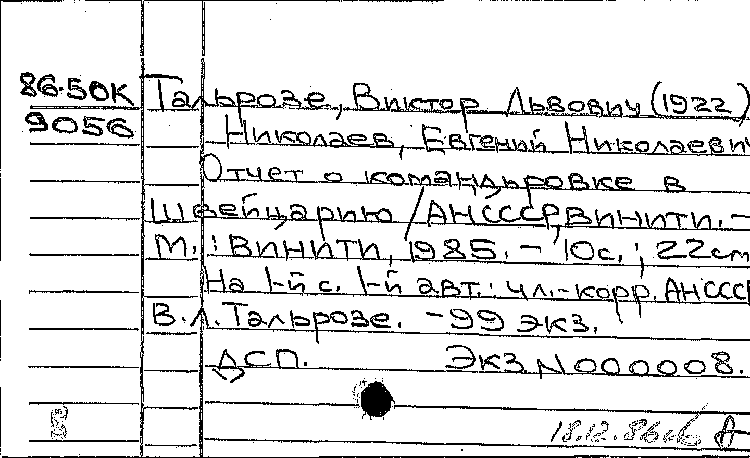 86-50К Тальрозе, Виктор Львович (1922)
9056 Николаев, Евгений Николаевич
Отчет о командировке в
Швейцарию / АН СССР, ВИНИТИ. -
М.: ВИНИТИ, 1985. - 10с.; 22см
На 1-й с. 1-й авт.: чл.-корр. АН СССР
В.Л. Тальрозе. - 99 экз.
ДСП. Экз N 000008.
18.12.86